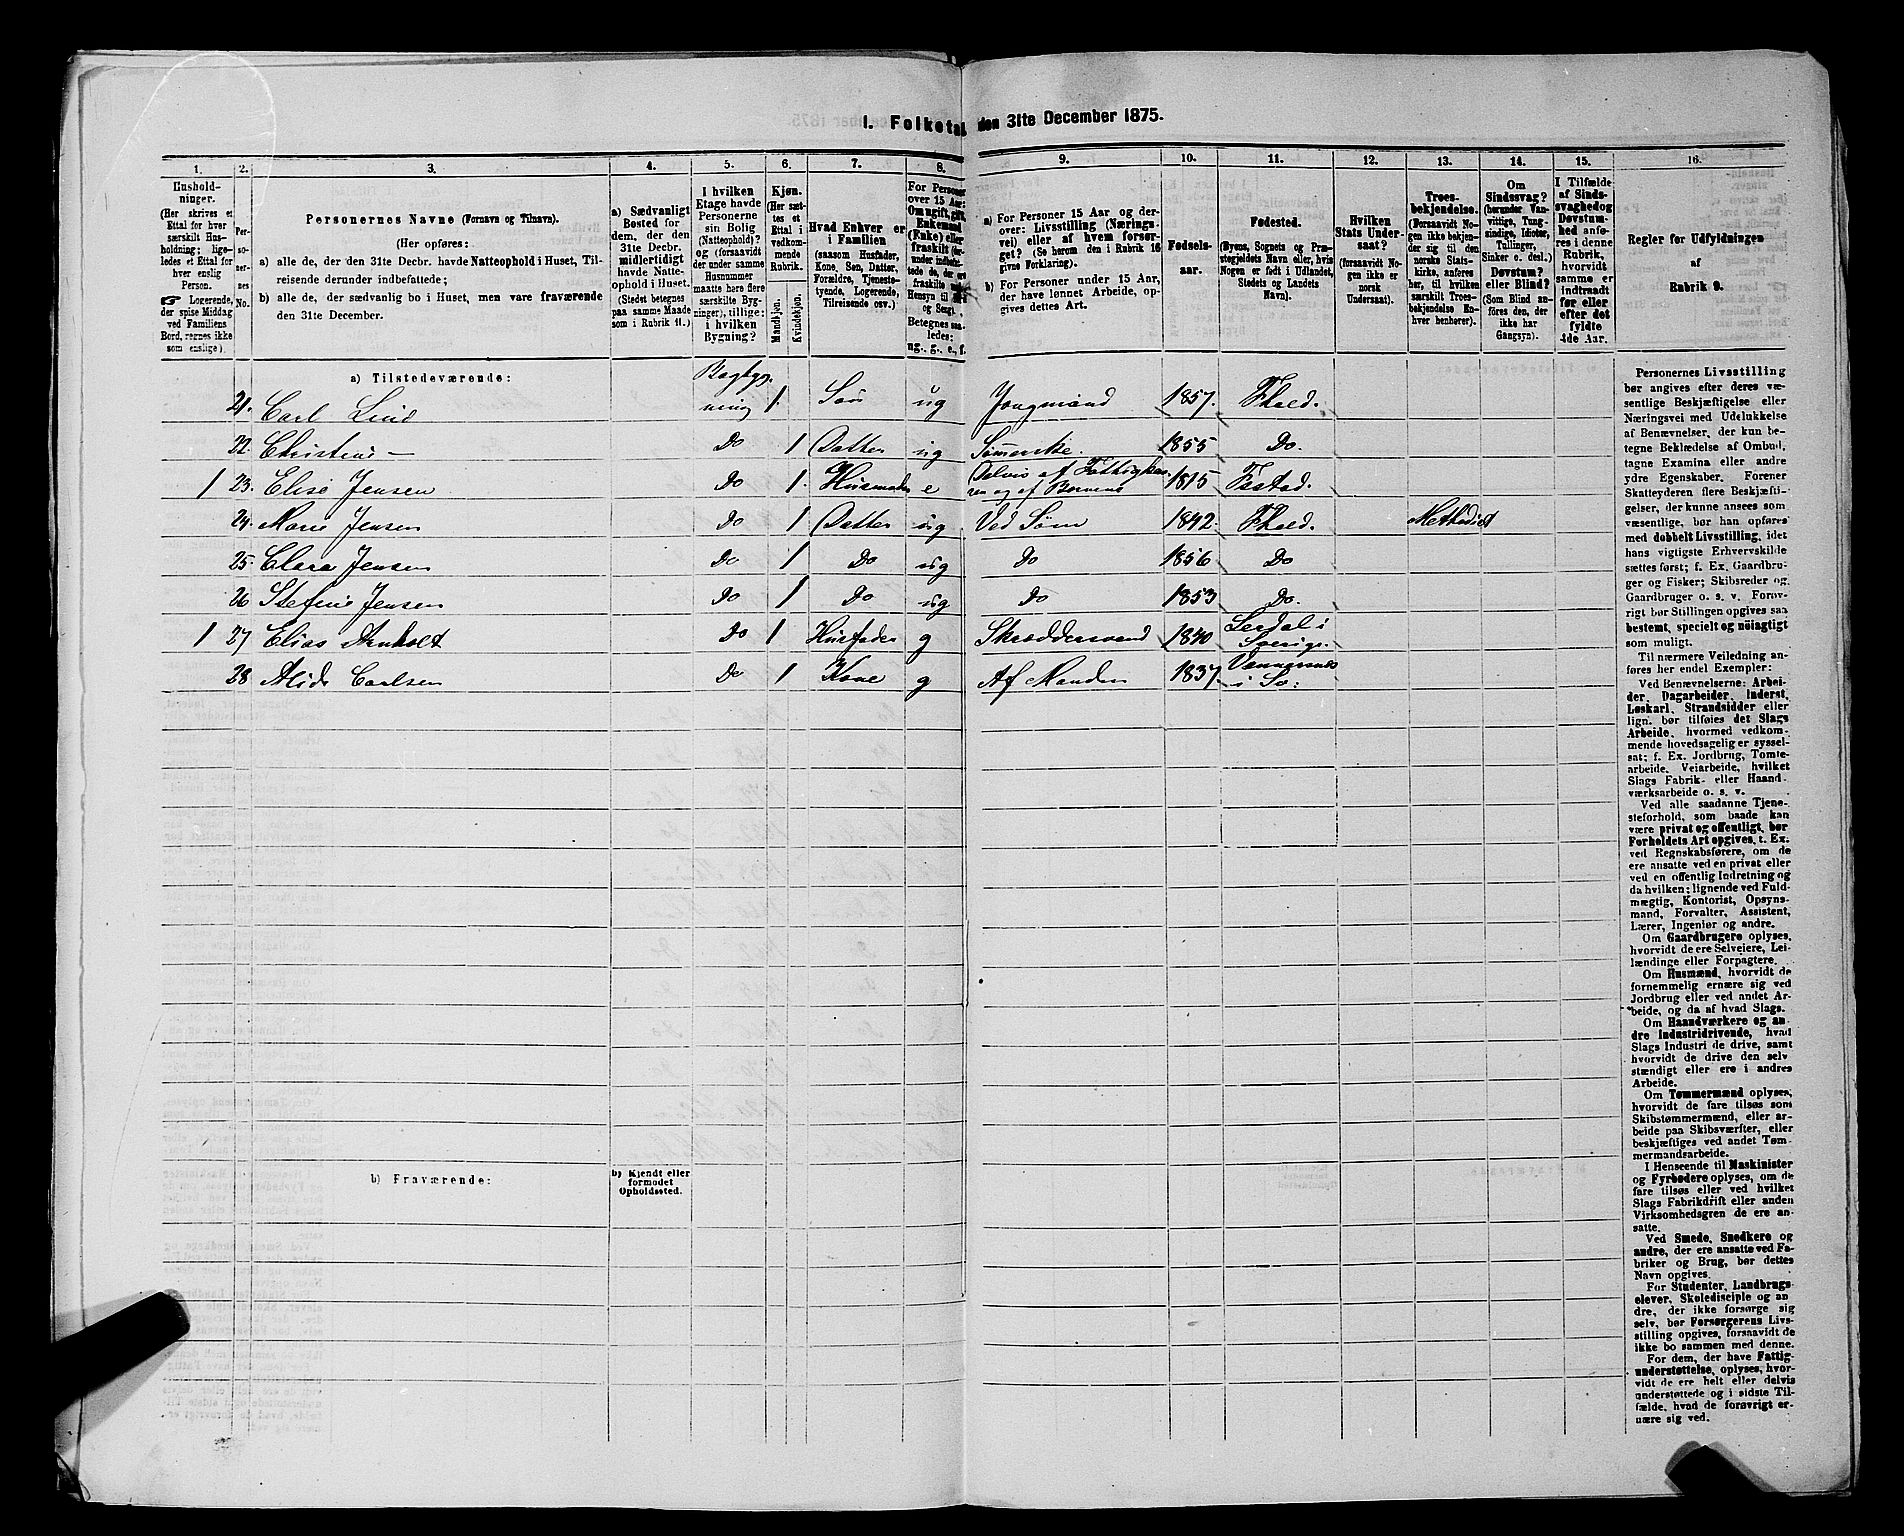 I. Folketal den 31te December 1875.
1. 2. 3. 4. 5. 6. 7. 8. 9. 10. 11. 12. 13. 14. 15. 16.
Husholdninger.
(Her skrives et
Ettal for hver
særskilt Husholdning;
ligeledes et Ettal for
hver enslig
Person.
Logerende,
der spise Middag
ved Familiens
Bord, regnes ikke
som enslige).
Personernes No.
Personernes Navne (Fornavn og Tilnavn).
(Her opføres:
a) alle de, der den 31te Decbr. havde Natteophold i Huset, Tilreisende derunder indbefattede;
b) alle de, der sædvanlig bo i Huset, men vare fraværende
den 31te December.
a) Sædvanligt
Bosted for
dem, der den
31te Decbr.
midlertidigt
havde Natteophold
i Huset.
(Stedet betegnes
paa samme Maade
som i Rubrik 11.)
I hvilken
Etage havde
Personerne
sin Bolig
(Natteophold)?
og (forsaavidt
der under samme
Husnummer
maatte høre flere
særskilte Bygninger),
tillige:
i hvilken
Bygning?
Kjøn.
(Her sættes
et
Ettal i
vedkommende
Rubrik.)
Mandkjøn.
Kvindekjøn.
Hvad Enhver er
i Familien
(saasom Husfader,
Kone, Søn, Datter,
Forældre, Tjenestetyende,
Logerende,
Tilreisende osv.)
For Personer
over 15 Aar:
Om ugift, gift,
Enkemand
(Enke) eller
fraskilt
Betegnes saaledes:
ug., g., e., f.
a) For Personer 15 Aar og derover:
Livsstilling (Næringsvei)
eller af hvem forsørget?
(Se herom den i Rubrik 16
givne Forklaring).
b) For Personer under 15 Aar,
der have lønnet Arbeide, opgives
dettes Art.
Fødselsaar.
Fødested.
(Byens, Sognets og Præstegjeldets
Navn eller, hvis
Nogen er født i Udlandet,
Stedets og Landets
Navn).
Hvilken
Stats Undersaat?
(forsaavidt Nogen
ikke er
norsk
Undersaat).
Troesbekjendelse.
(Forsaavidt Nogen
ikke bekjender
sig til den
norske Statskirke,
anføres
her, til hvilken
særskilt Troesbekjendelse
Enhver
henhører).
Om
Sindssvag?
(herunder Vanvittige,
Tungsindige,
Idioter,
Tullinger,
Sinker o. desl.)
Døvstum?
eller Blind?
(Som Blind anføres
den, der
ikke har
Gangsyn).
I Tilfælde
af Sindssvaghed
og
Døvstumhed
anføres
i denne
Rubrik,
hvorvidt
samme er
indtraadt
før eller
efter det
fyldte
4de Aar.
Regler for Udfyldningen
af
Rubrik 9.
a) Tilstedeværende:
21. Carl Lind Bagbygning 1. Søn ug Jungmand 1857. Fhald.
22. Christine — Do 1 Datter ug Sømerske. 1855 Do.
1 23. Elise Jensen Do 1. Husmoder e Delvis af Fattigkas. og af Børnene 1815 Fhald.
24. Marie Jensen Do 1 Datter ug Ved Søm 1842. Fhald. Methodist
25. Clara Jensen Do 1 Do ug Do 1856 Do
26 Stefine Jensen Do 1 Do ug Do 1853 Do.
1 27 Elias Arnholt Do 1 Husfader g Skræddersvend 1840 Lerdal i Sverige.
28 Alida Carlsen Do 1 Kone g Af Manden 1837 i Sv:
b) Fraværende:
b) Kjendt eller
formodet
Opholdssted.
Personernes Livsstilling
bør angives efter deres væsentlige
Beskjæftigelse eller
Næringsvei med Udelukkelse
af Benævnelser, der kun betegne
Beklædelse af Ombud,
tagne Examina eller andre
ydre Egenskaber. Forener
Skatteyderen flere Beskjæftigelser,
der kunne ansees som
væsentlige, bør han opføres
med dobbelt Livsstilling, idet
hans vigtigste Erhvervskilde
sættes først; f. Ex. Gaardbruger
og Fisker; Skibsreder og
Gaardbruger o. s. v. Forøvrigt
bør Stillingen opgives saa
bestemt, specielt og nøiagtigt
som muligt.
Til nærmere Veiledning anføres
her endel Exempler:
Ved Benævnelserne: Arbeider,
Dagarbeider, Inderst,
Løskarl, Strandsidder eller
lign. bør tilføies det Slags
Arbeide, hvormed vedkommende
hovedsagelig er sysselsat;
f. Ex. Jordbrug, Tomtearbeide,
Veiarbeide, hvilket
Slags Fabrik- eller Haandværksarbeide
o. s. v.
Ved alle saadanne Tjenesteforhold,
som baade kan
være privat og offentligt, bør
Forholdets Art opgives, t. Ex.
ved Regnskabsførere, om de
ere ansatte ved en privat eller
ved en offentlig Indretning og
da hvilken; lignende ved Fuldmægtig,
Kontorist, Opsynsmand,
Forvalter, Assistent,
Lærer, Ingeniør og andre.
Om Gaardbrugere oplyses,
hvorvidt de ere Selveiere, Leilændinge
eller Forpagtere.
Om Husmænd, hvorvidt de
fornemmelig ernære sig ved
Jordbrug eller ved andet Arbeide,
og da af hvad Slags.
Om Haandværkere og andre
Industridrivende, hvad
Slags Industri de drive, samt
hvorvidt de drive den selvstændigt
eller ere i andres
Arbeide.
Om Tømmermænd oplyses,
hvorvidt de fare tilsøs som
Skibstømmermænd, eller arbeide
paa Skibsværfter, eller
beskjæftiges ved andet Tømmermandsarbeide.
I Henseende til Maskinister
og Fyrbødere oplyses, om de
fare tilsøs eller ved hvilket
Slags Fabrikdrift eller anden
Virksomhedsgren de ere ansatte.
Ved Smede, Snedkere og
andre, der ere ansatte ved Fabriker
og Brug, bør dettes
Navn opgives.
For Studenter, Landbrugselever,
Skoledisciple og andre,
der ikke forsørge sig
selv, bør Forsørgerens Livsstilling
opgives, forsaavidt de
ikke bo sammen med denne.
For dem, der have Fattigunderstøttelse,
oplyses, hvorvidt
de ere helt eller delvis
understøttede og i sidste Tilfælde,
hvad de forøvrigt ernære
sig ved.